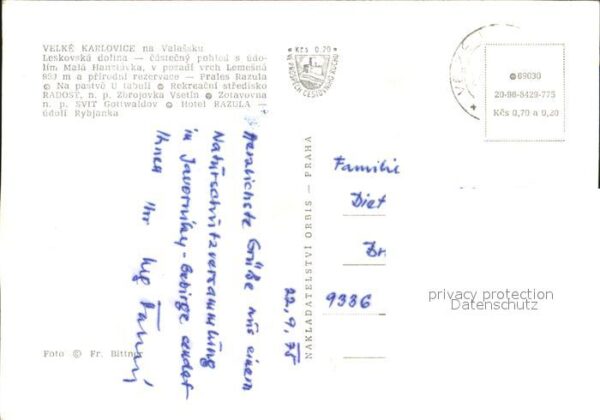 VELKÉ KARLOVICE na Valašsku
Leskovská dolina — částečný pohled s údo-
lím Malá Hanzlůvka, v pozadí vrch Lemešná
950 m a přírodní rezervace — Prales Razula
Na pastvě U tabulí Rekreační středisko
RADOST, n. p. Zbrojovka Vsetín Zotavovna
n. p. SVIT Gottwaldov Hotel RAZULA —
údolí Rybjanka
Kčs 0,20
69030
20-96-8429-775
Kčs 0,70 a 0,20
Herzlichste Grüße aus einem
Naturschutzversammlung
in Javorníky-Gebirge sendet
Ihnen Ihr
22.9.75
NAKLADATELSTVÍ ORBIS — PRAHA
Familie
Diet
Dr
9336
privacy protection
Datenschutz
Foto © Fr. Bittner